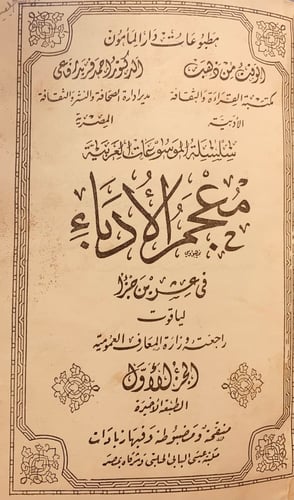 مطبوعات دار المأمون
الوقت من ذهب
الدكتور أحمد فريد رفاعى
مكتبة القراءة والثقافة
مدير إدارة الصحافة والنشر والثقافة
الأدبية
المصرية
سلسلة الموسوعات العربية
معجم الأدباء
فى عشرين جزءا
لياقوت
راجعته وزارة المعارف العمومية
الجزء الأول
الطبعة الأخيرة
منقحة ومضبوطة وفيها زيادات
مكتبة عيسى البابى الحلبى وشركاه بمصر